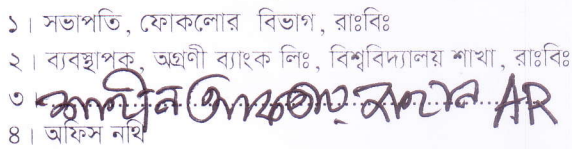 ১। সভাপতি, ফোকলোর বিভাগ, রাঃবিঃ
২। ব্যবস্থাপক, অগ্রণী ব্যাংক লিঃ, বিশ্ববিদ্যালয় শাখা, রাঃবিঃ
৩। AR
৪। অফিস নথি